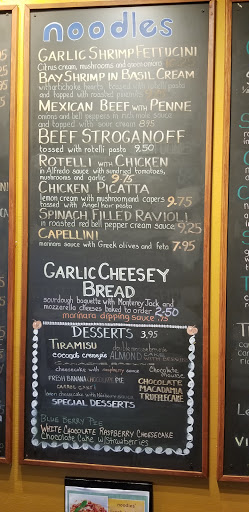 noodles
GARLIC SHRIMP FETTUCINI
Citrus cream, mushrooms and
BAY SHRIMP IN BASIL CREAM
with artichoke hearts tossed with
and topped with roasted
MEXICAN BEEF WITH PENNE
onions and bell peppers in rich mole sauce
and topped with sour cream 8.95
BEEF STROGANOFF
tossed with rotelli pasta 9.50
ROTELLI WITH CHICKEN
in Alfredo sauce with sundried tomatoes,
mushrooms and garlic 9.75
CHICKEN PICATTA
lemon cream with mushrooms and capers 9.75
tossed with Angel hair pasta
SPINACH FILLED RAVIOLI
in roasted red bell pepper cream sauce 9.25
CAPELLINI
marinara sauce with Greek olives and feta 7.95
GARLIC CHEESEY
BREAD
sourdough baguette with Monterey Jack and
mozzarella cheeses baked to order 2.50
marinara dipping sauce .75
DESSERTS 3.95
TIRAMISU
ALMOND
cheesecake with raspberry sauce
Chocolate
mousse
FRESH BANANA CHOCOLATE PIE
CARROT CAKE
CHOCOLATE
MACADAMIA
TRUFFLECAKE
SPECIAL DESSERTS
BLUE BERRY PIE
WHITE CHOCOLATE RASPBERRY CHEESECAKE
Chocolate Cake w/ strawberries
noodles